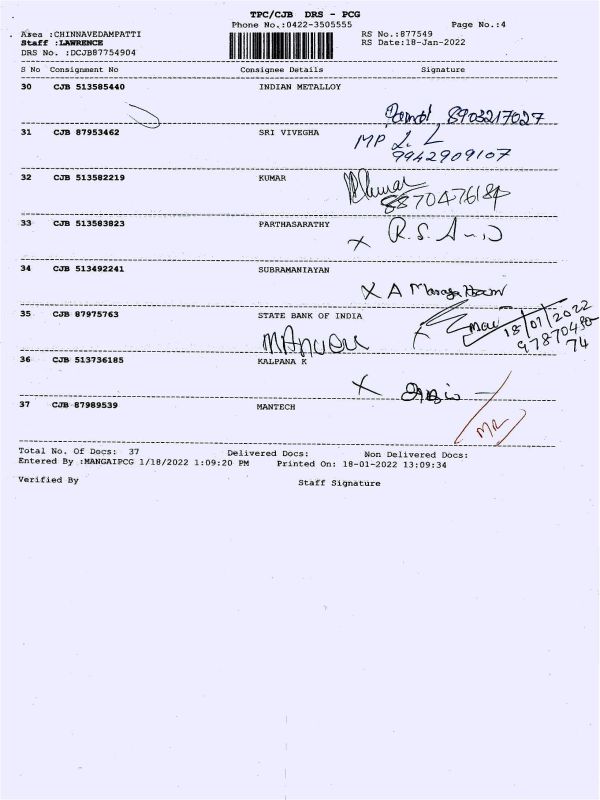 TPC/CJB DRS - PCG
Phone No.:0422-3505555 Page No.:4
Area :CHINNAVEDAMPATTI RS No.:877549
Staff :LAWRENCE RS Date:18-Jan-2022
DRS No. :DCJB87754904
S No Consignment No Consignee Details Signature
30 CJB 513585440 INDIAN METALLOY
8903217027
31 CJB 87953462 SRI VIVEGHA
MP
9942909107
32 CJB 513582219 KUMAR
Kumar
8870476184
33 CJB 513583823 PARTHASARATHY
X R.S.
34 CJB 513492241 SUBRAMANIAYAN
X A
35 CJB 87975763 STATE BANK OF INDIA
18/01/2022
97870430
74
36 CJB 513736185 KALPANA K
X
37 CJB 87989539 MANTECH
MR
Total No. Of Docs: 37 Delivered Docs: Non Delivered Docs:
Entered By :MANGAIPCG 1/18/2022 1:09:20 PM Printed On: 18-01-2022 13:09:34
Verified By Staff Signature